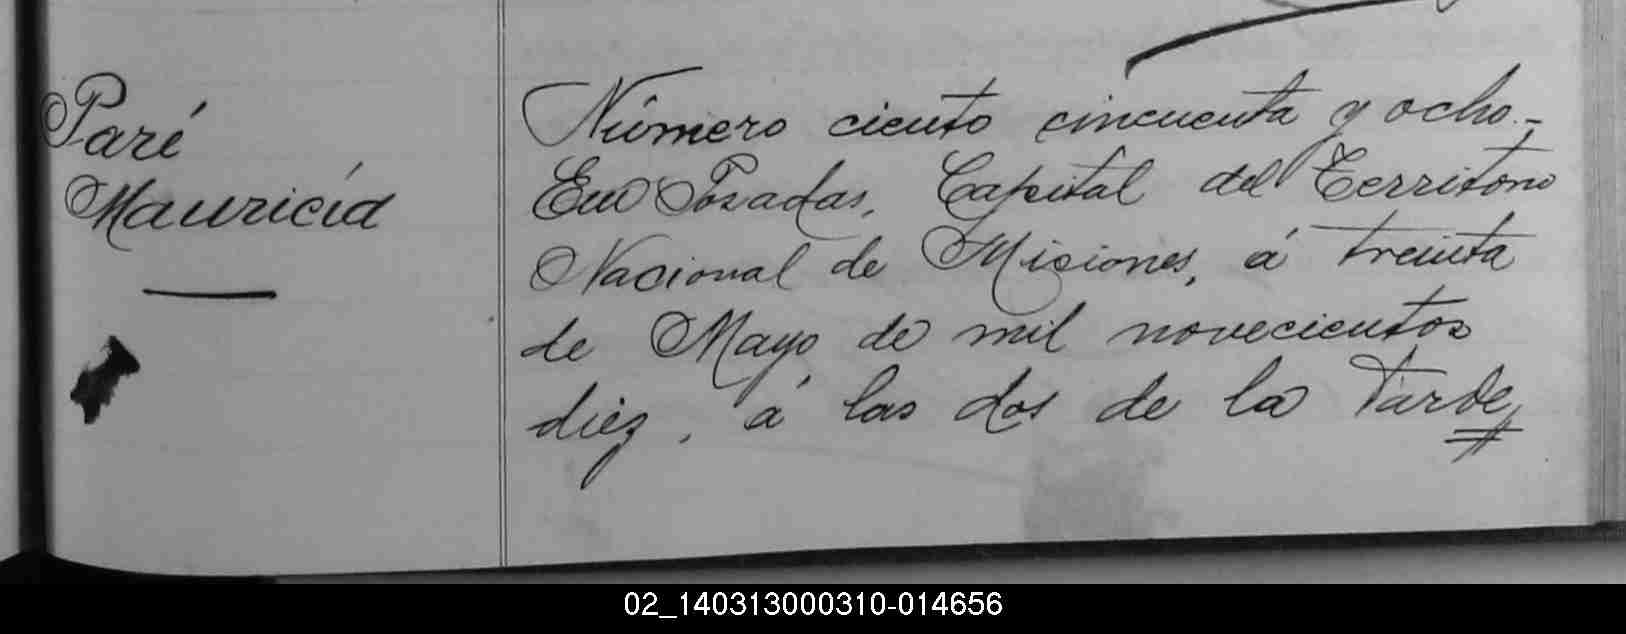 Paré
Mauricia
Número ciento cincuenta y ocho.-
En Posadas, Capital del Territorio
Nacional de Misiones, á treinta
de Mayo de mil novecientos
diez, á las dos de la tarde,
02_140313000310-014656